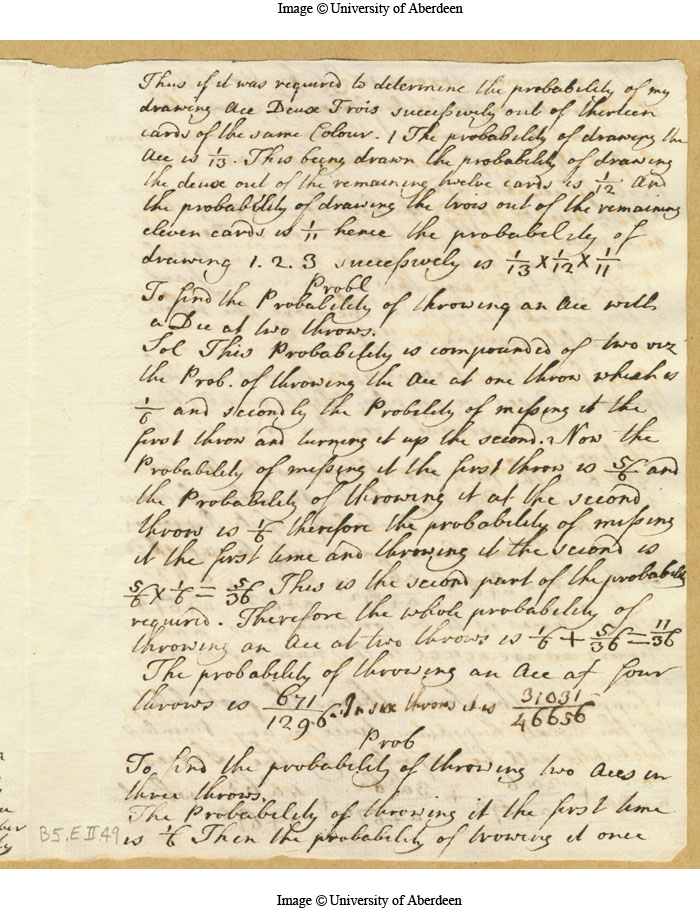 Image © University of Aberdeen
Thus if it was required to determine the probability of my
drawing Ace Deuse Trois successively out of thirteen
cards of the same Colour. / The probability of drawing the
Ace is 1/13. This being drawn the probability of drawing
the deuse out of the remaining twelve cards is 1/12 And
the probability of drawing the trois out of the remaining
eleven cards is 1/11 hence the probability of
drawing 1. 2. 3 successively is 1/13 × 1/12 × 1/11
Probl
To find the Probability of throwing an Ace with
a Die at two throws.
Sol This Probability is compounded of two viz
the Prob. of throwing the Ace at one throw which is
1/6 and secondly the Probility of missing it the
first throw and turning it up the second. Now the
Probability of missing it the first throw is 5/6 and
the Probability of throwing it at the second
throw is 1/6 therefore the probability of missing
it the first time and throwing it the second is
5/6 × 1/6 = 5/36 This is the second part of the probability
required. Therefore the whole probability of
throwing an Ace at two throws is 1/6 + 5/36 = 11/36
The probability of throwing an Ace at four
throws is 671/1296. In six throws it is 31031/46656
Prob
To find the probability of throwing two Aces in
three throws.
The Probability of throwing it the first time
is 1/6 Then the probability of trowing it once
B5.E II.49
Image © University of Aberdeen